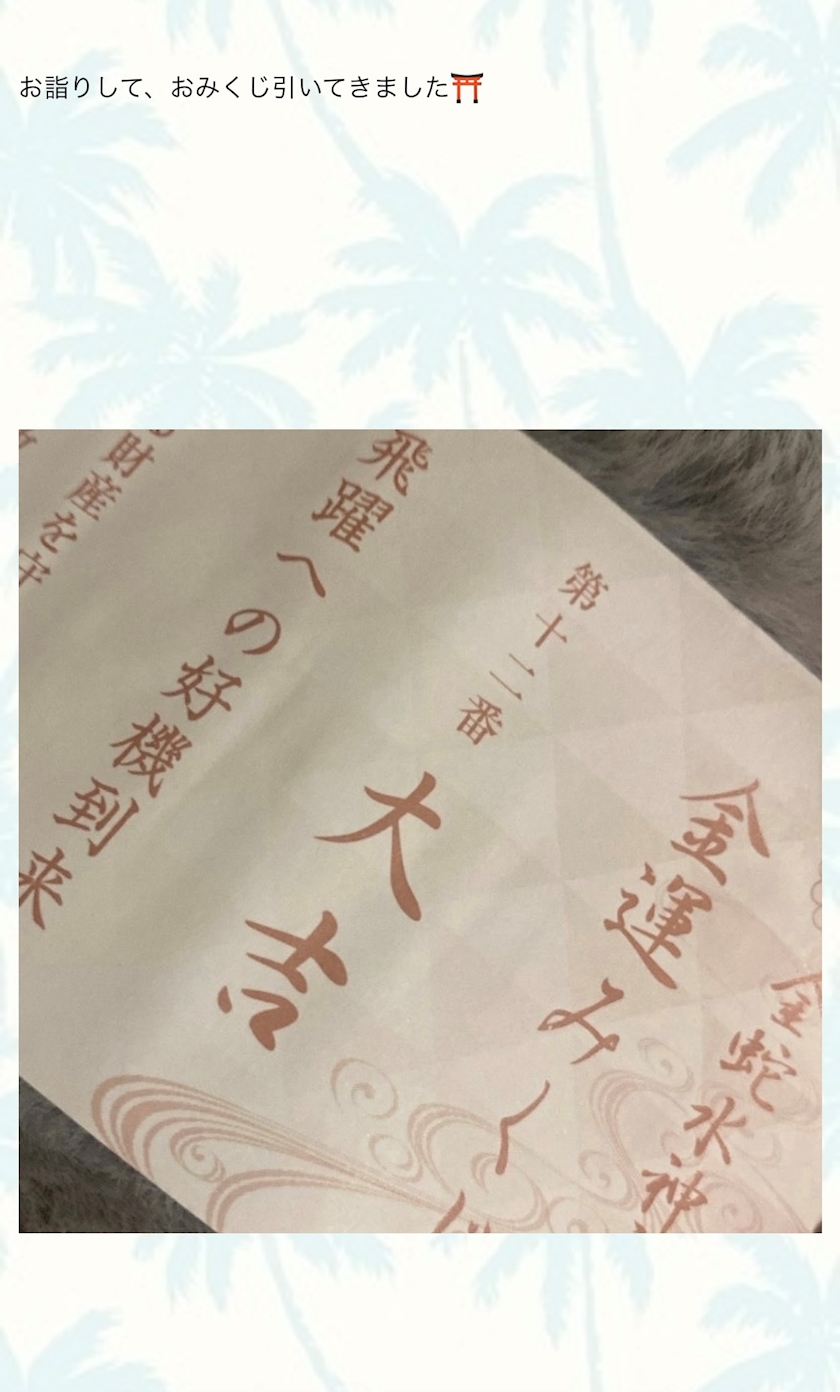 お詣りして、おみくじ引いてきました⛩️
金蛇水神
金運みく
第十二番
大吉
飛躍への好機到来
財産を守